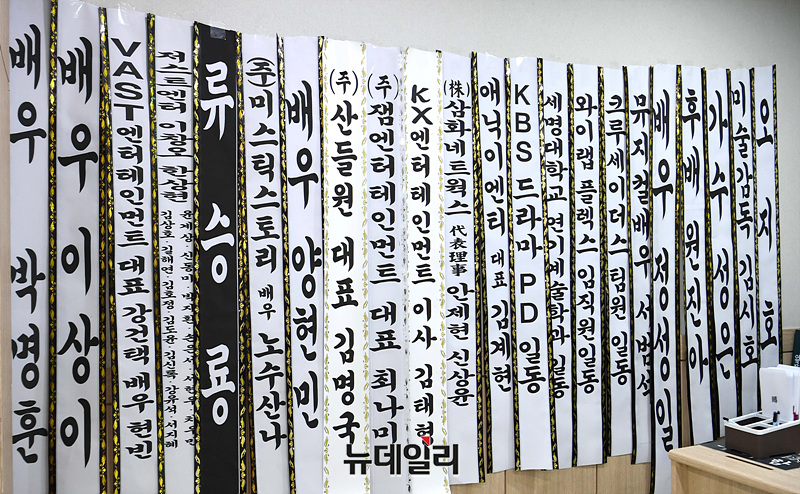 배우 박명훈
배우 이상이
VAST엔터테인먼트 대표 강건택 배우 현빈
저스트엔터 이창오 한상현
류승룡
(주)미스틱스토리 배우 노수산나
배우 양현빈
(주)산들원 대표 김명국
(주)잼엔터테인먼트 대표 최나미
KX엔터테인먼트 이사 김태현
(株)삼화네트웍스 代表理事 안제현 신상윤
애닉이엔티 대표 김계현
KBS 드라마 PD 일동
세명대학교 연기예술학과 일동
와이랩 플렉스 임직원일동
크루세이더스 팀원 일동
뮤지컬배우 서범석
배우 정성일
후배 원진아
가수 성은
미술감독 김시호
오지호
뉴데일리